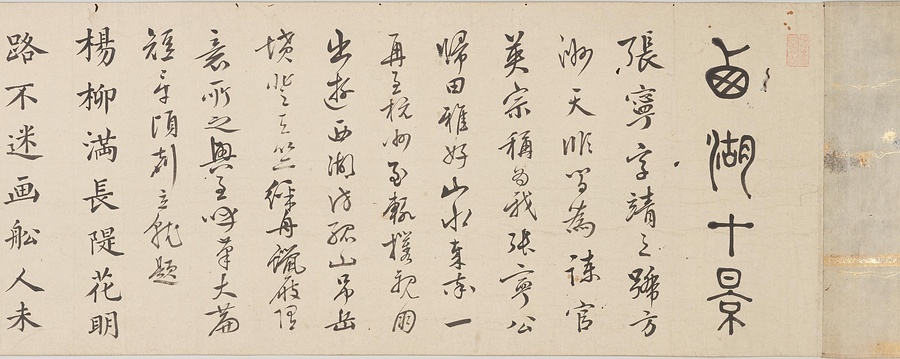 西湖十景
張寧字靖之號方
洲天順間為諫官
英宗稱為我張寧公
歸田雅好山水 一
再至杭州至輒 親朋
出遊西湖訪孤山吊岳
墳登天竺 舟蠟屐隨
意所之興至呼筆大篇
短章頃刻立就題
楊柳滿長隄花明
路不迷画船人未